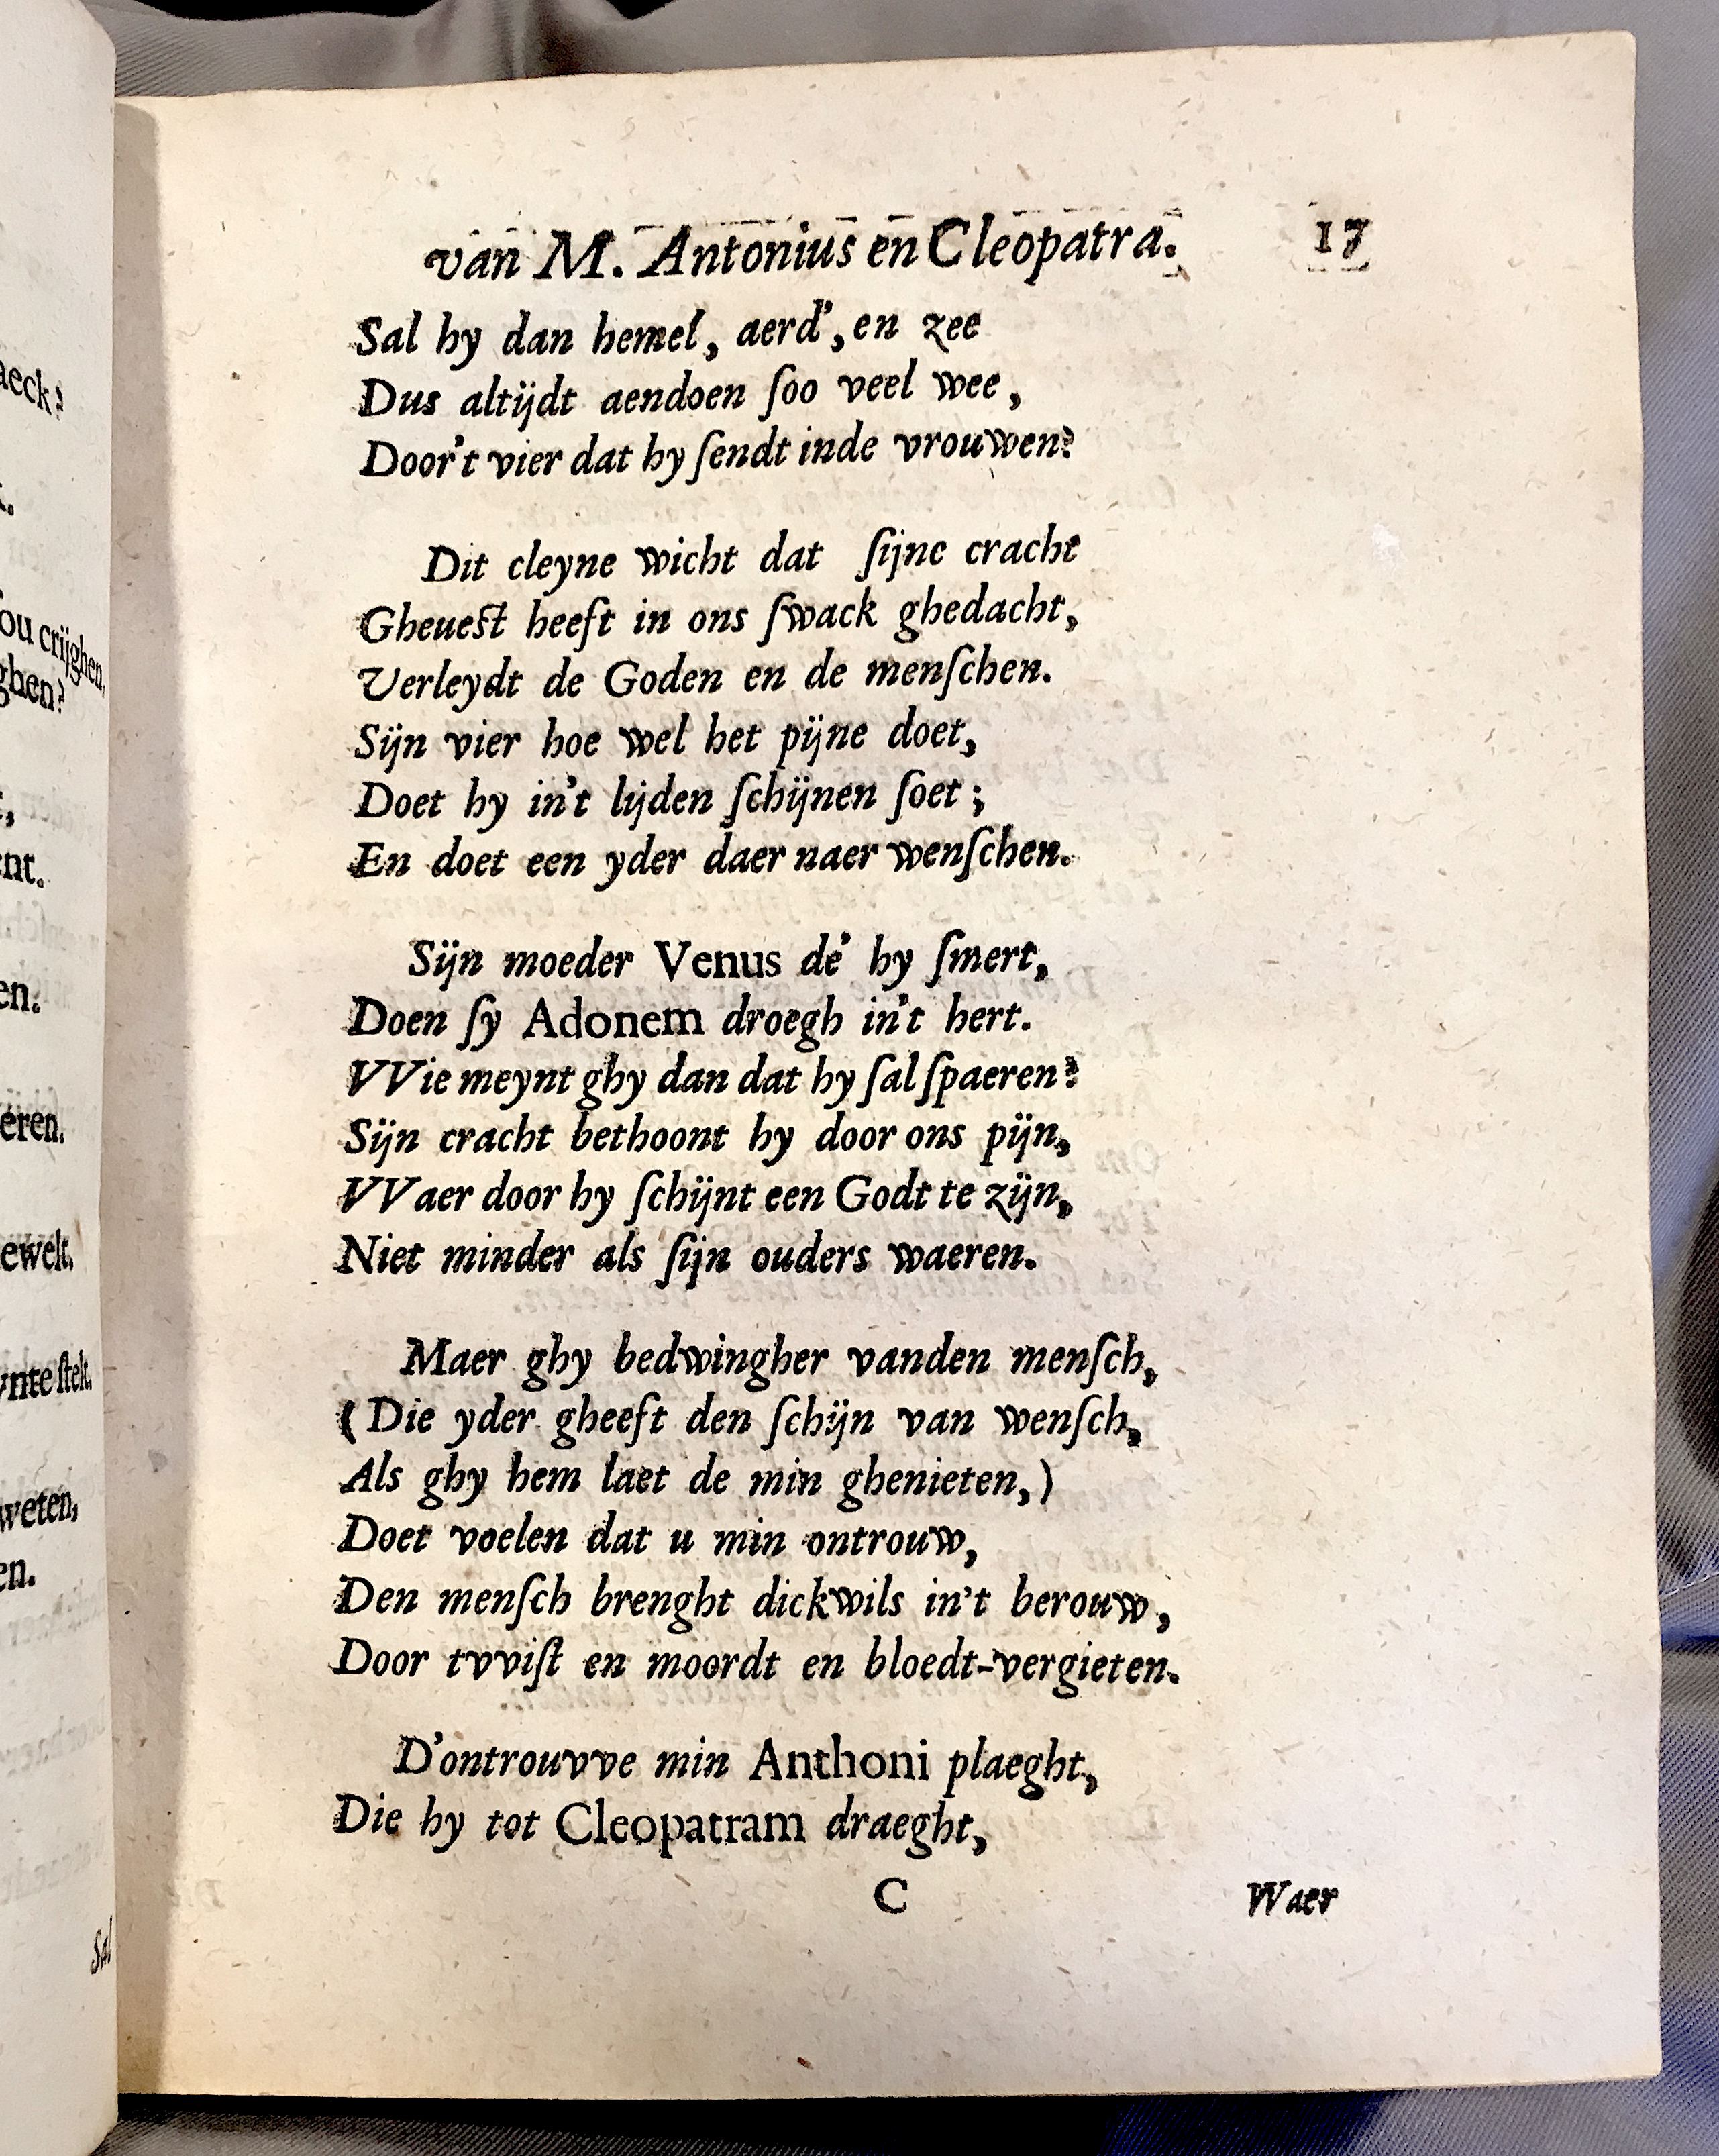 aeck?
ou crijghen,
ghen?
nt.
en.
eren.
ewelt.
nte ſtelt.
weten,
en.
Sal
van M. Antonius en Cleopatra. 17
Sal hy dan hemel, aerd', en zee
Dus altijdt aendoen ſoo veel wee,
Door't vier dat hy ſendt inde vrouwen?
Dit cleyne wicht dat ſijne cracht
Gheueſt heeft in ons ſwack ghedacht,
Verleydt de Goden en de menſchen.
Sijn vier hoe wel het pijne doet,
Doet hy in't lijden ſchijnen ſoet;
En doet een yder daer naer wenſchen.
Sijn moeder Venus de' hy ſmert,
Doen ſy Adonem droegh in't hert.
VVie meynt ghy dan dat hy ſal ſpaeren?
Sijn cracht bethoont hy door ons pijn,
VVaer door hy ſchijnt een Godt te zijn,
Niet minder als ſijn ouders waeren.
Maer ghy bedwingher vanden menſch,
(Die yder gheeft den ſchijn van wenſch,
Als ghy hem laet de min ghenieten,)
Doet voelen dat u min ontrouw,
Den menſch brenght dickwils in't berouw,
Door tvviſt en moordt en bloedt-vergieten.
D'ontrouvve min Anthoni plaeght,
Die hy tot Cleopatram draeght,
C Waer